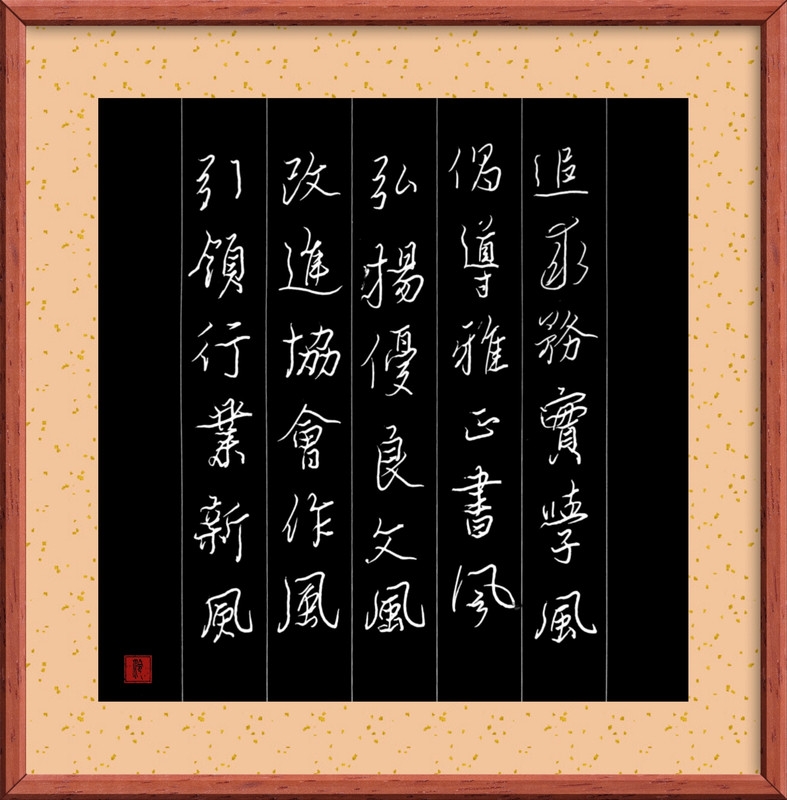 追求務實學風
倡導雅正書風
弘揚優良文風
改進協會作風
引領行業新風